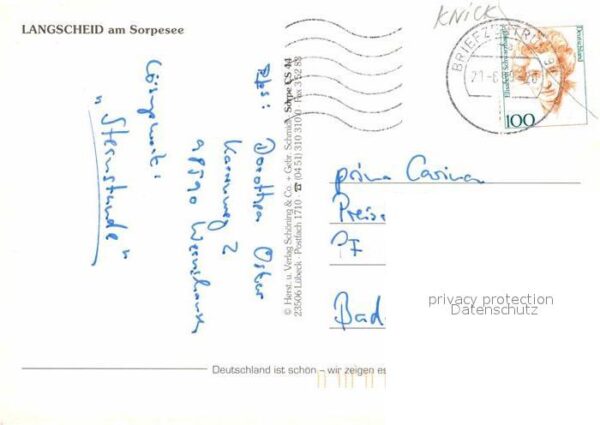 LANGSCHEID am Sorpesee
KNICK
BRIEFZENTRUM
Deutschland
Elisabeth Schwarzhaupt
100
Lösungswort:
„Sternstunde"
Abs: Dorothea Oster
2
© Herst. u. Verlag Schöning & Co. + Gebr. Schmidt · Sorpe CS 44
23506 Lübeck · Postfach 1710 · ☎ (04 51) 310 310 · Fax 3 52 83
prima Carina
Preis
PF
Bad
privacy protection
Datenschutz
Deutschland ist schön – wir zeigen es